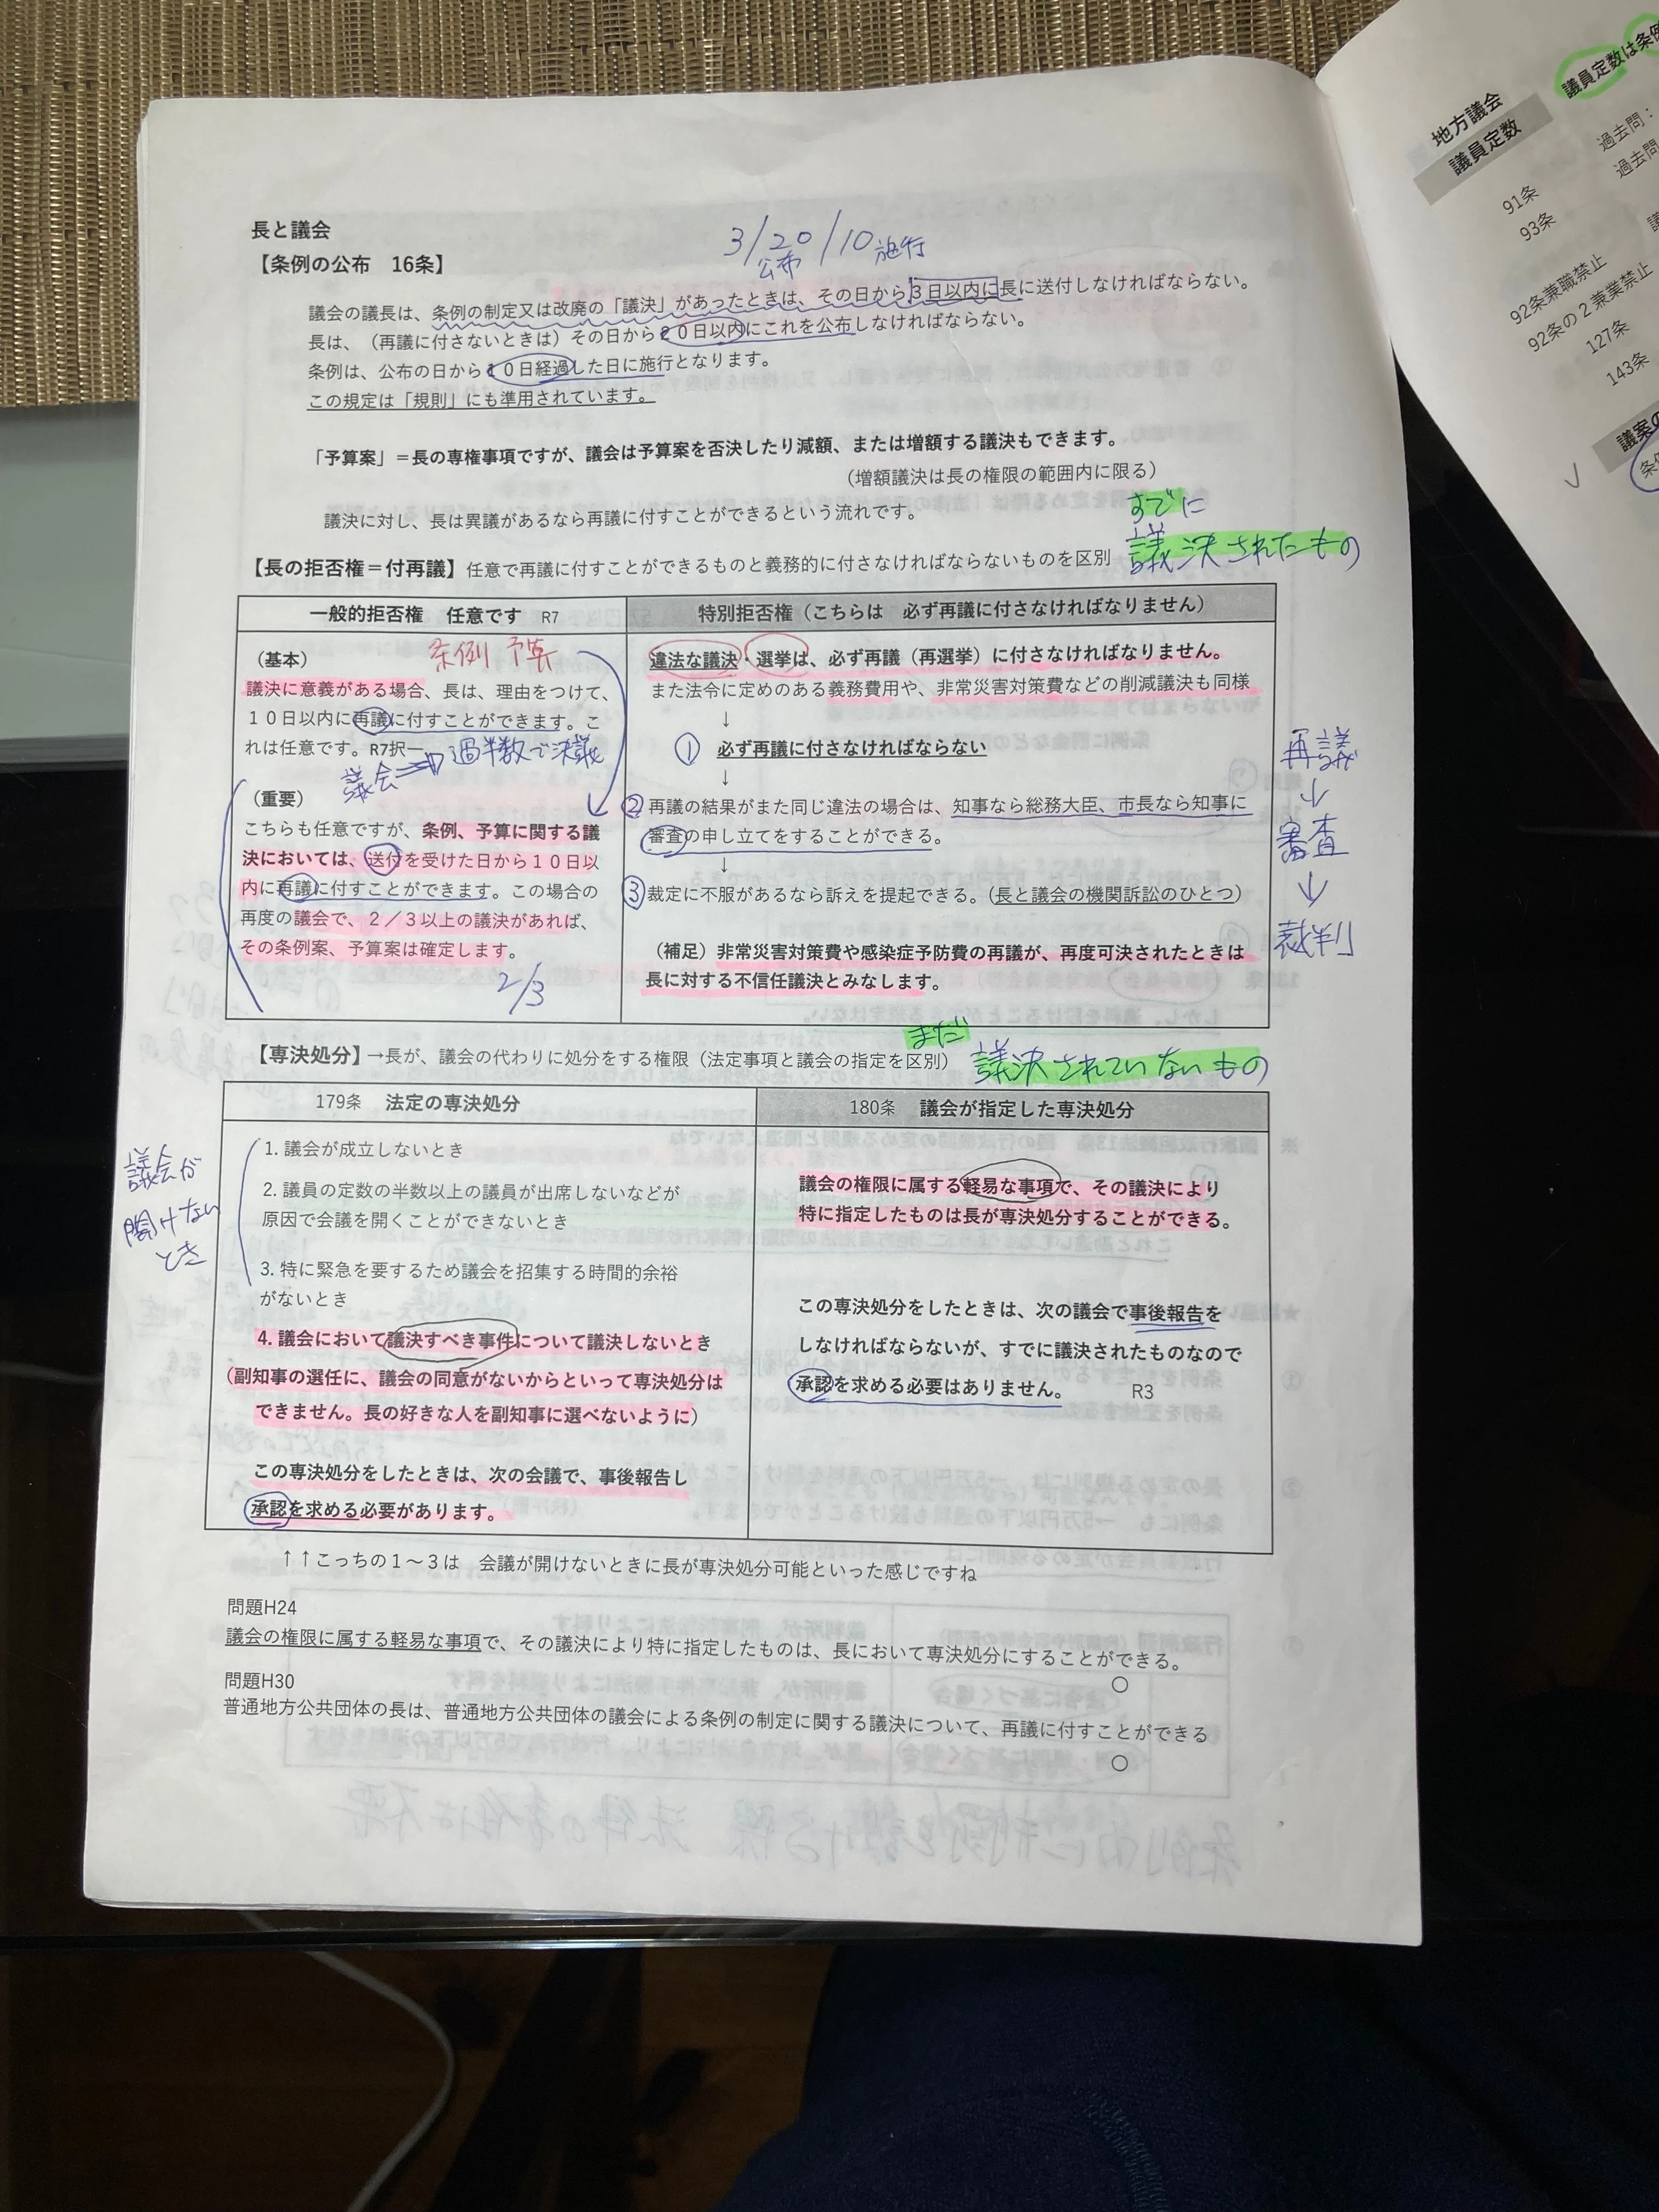 長と議会
3/20/10施行
公布
【条例の公布　16条】
議会の議長は、条例の制定又は改廃の「議決」があったときは、その日から3日以内に長に送付しなければならない。
長は、（再議に付さないときは）その日から２０日以内にこれを公布しなければならない。
条例は、公布の日から１０日経過した日に施行となります。
この規定は「規則」にも準用されています。
「予算案」＝長の専権事項ですが、議会は予算案を否決したり減額、または増額する議決もできます。
（増額議決は長の権限の範囲内に限る）
議決に対し、長は異議があるなら再議に付すことができるという流れです。
すでに
議決されたもの
【長の拒否権＝付再議】任意で再議に付すことができるものと義務的に付さなければならないものを区別
一般的拒否権　任意です　R7
条例 予算
（基本）
議決に意義がある場合、長は、理由をつけて、
１０日以内に再議に付すことができます。こ
れは任意です。R7択一
議会⇒過半数で決議
（重要）
こちらも任意ですが、条例、予算に関する議
決においては、送付を受けた日から１０日以
内に再議に付すことができます。この場合の
再度の議会で、２／３以上の議決があれば、
その条例案、予算案は確定します。
2/3
特別拒否権（こちらは　必ず再議に付さなければなりません）
違法な議決・選挙は、必ず再議（再選挙）に付さなければなりません。
また法令に定めのある義務費用や、非常災害対策費などの削減議決も同様
↓
① 必ず再議に付さなければならない
↓
② 再議の結果がまた同じ違法の場合は、知事なら総務大臣、市長なら知事に
審査の申し立てをすることができる。
↓
③ 裁定に不服があるなら訴えを提起できる。（長と議会の機関訴訟のひとつ）
（補足）非常災害対策費や感染症予防費の再議が、再度可決されたときは
長に対する不信任議決とみなします。
再議
↓
審査
↓
裁判
【専決処分】→長が、議会の代わりに処分をする権限（法定事項と議会の指定を区別）
まだ
議決されていないもの
179条　法定の専決処分
議会が
開けない
とき
1. 議会が成立しないとき
2. 議員の定数の半数以上の議員が出席しないなどが
原因で会議を開くことができないとき
3. 特に緊急を要するため議会を招集する時間的余裕
がないとき
4. 議会において議決すべき事件について議決しないとき
（副知事の選任に、議会の同意がないからといって専決処分は
できません。長の好きな人を副知事に選べないように）
この専決処分をしたときは、次の会議で、事後報告し
承認を求める必要があります。
180条　議会が指定した専決処分
議会の権限に属する軽易な事項で、その議決により
特に指定したものは長が専決処分することができる。
この専決処分をしたときは、次の議会で事後報告を
しなければならないが、すでに議決されたものなので
承認を求める必要はありません。　R3
↑↑こっちの１～３は　会議が開けないときに長が専決処分可能といった感じですね
問題H24
議会の権限に属する軽易な事項で、その議決により特に指定したものは、長において専決処分にすることができる。
○
問題H30
普通地方公共団体の長は、普通地方公共団体の議会による条例の制定に関する議決について、再議に付すことができる
○
議員定数は条例
地方議会
議員定数
過去問：
過去問
91条
93条
92条兼職禁止
92条の２兼業禁止
127条
143条
議案の